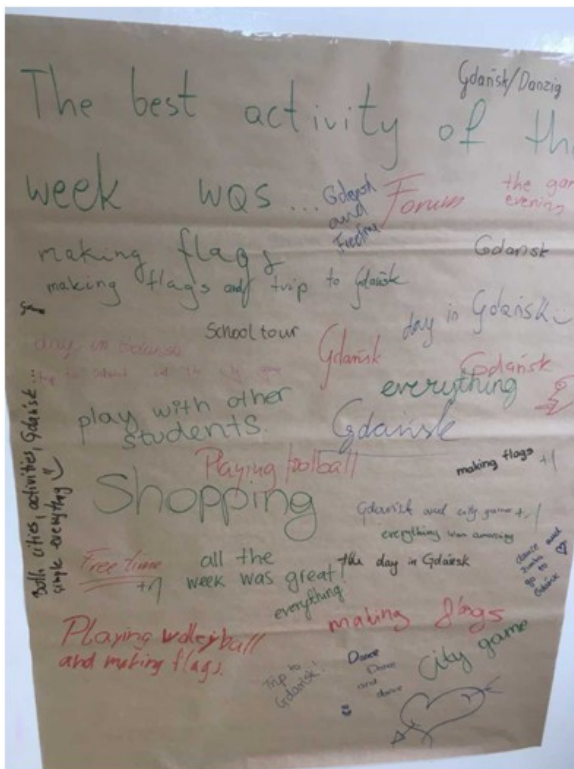 Gdańsk/Danzig
The best activity of th
week was...
Gdańsk
and
Freetime
Forum
the gam
evening
making flags
Gdańsk
making flags and trip to Gdańsk
day in Gdańsk
School tour
day in Gdańsk
Gdańsk
Gdańsk
trip to Gdańsk and the city game
everything
play with other
students.
Gdańsk
Playing football
making flags +1
Shopping
Gdańsk and city game +1
everything was amazing
Both cities, activities, Gdańsk...
simple everything
Free time
+1
all the
week was great!
the day in Gdańsk
everything
dance and
go to
Gdańsk
making flags
Playing volleyball
and making flags.
City game
Trip to
Gdańsk!
Dance
Dance
and
dance